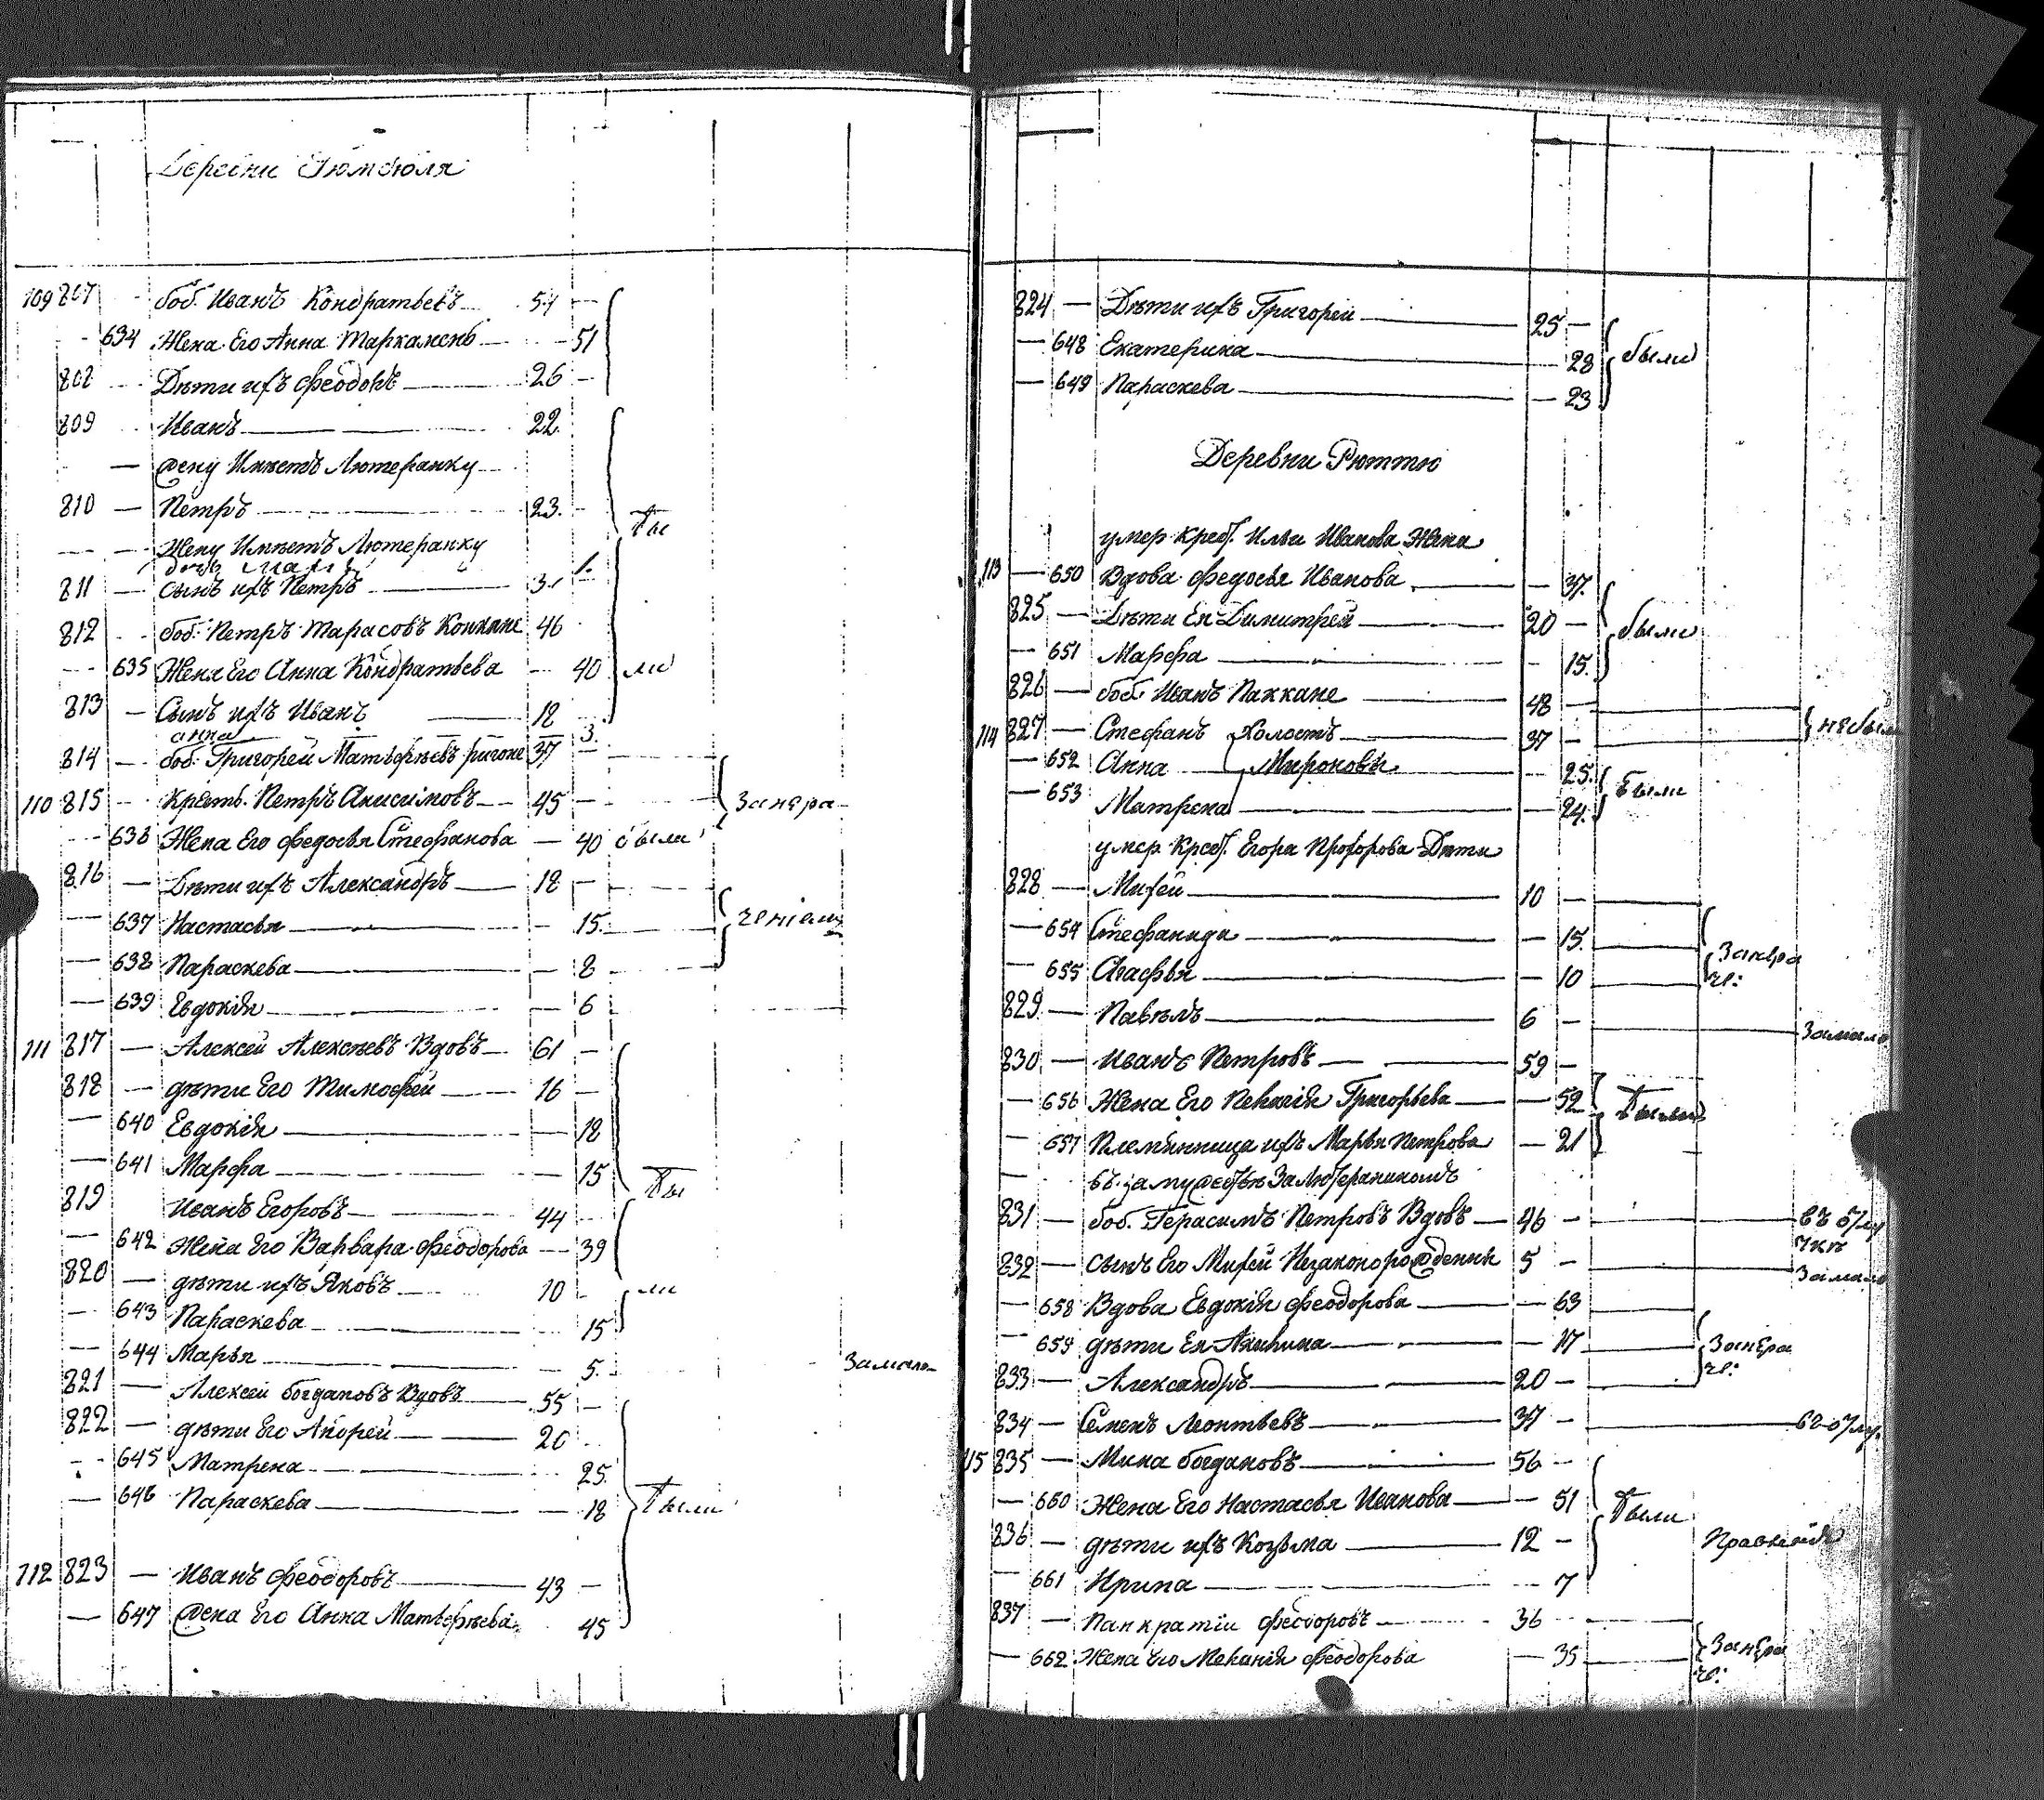 Деревни
109 807 боб. Иванъ Кондратьевъ 54
634 Жена Его Анна 51
808 Дѣти ихъ Феодоръ 26
809 Иванъ 22
Жену Имѣетъ Лютеранку
810 Петръ 23
Жену Имѣетъ Лютеранку
1
811 Сынъ ихъ Петръ 3
812 боб. Петръ Тарасовъ 46
635 Жена Его Анна Кондратьева 40
813 Сынъ ихъ Иванъ 18
анна 3
814 боб. Григорей Матвѣевъ 37
110 815 Кресть. Петръ Анисимовъ 45
638 Жена Его Федосья Стефанова 40 были
816 Дѣти ихъ Александръ 18
637 Настасья 15
638 Параскева 8
639 Евдокія 6
111 817 Алексей Алексѣевъ Вдовъ 61
818 дѣти Его Тимофей 16
640 Евдокія 18
641 Марфа 15
819 Иванъ Егоровъ 44
642 Жена Его Варвара Феодорова 39
820 дѣти ихъ Яковъ 10
643 Параскева 15
644 Марья 5 Замало
821 Алексей Богдановъ Вдовъ 55
822 дѣти Его Андрей 20
645 Матрена 25
646 Параскева 18 Были
112 823 Иванъ Феодоровъ 43
647 Жена Его Анна Матвѣева 45
824 Дѣти ихъ Григорей 25
648 Екатерина 28 были
649 Параскева 23
Деревни Рюттю
умер Крест. Ильи Иванова Жена
113 650 Вдова Федосья Иванова 37
825 Дѣти Ея Димитрей 20 были
651 Марфа 15
826 боб. Иванъ Паккане 48
114 827 Стефанъ Холостъ 37 небыли
652 Анна Мироновы 25 Были
653 Матрена 24
умер Крест. Егора Прохорова Дѣти
828 Михей 10
654 Стефанида 15
655 Агафья 10
829 Павелъ 6 Замало
830 Иванъ Петровъ 59
656 Жена Его Пелагія Григорьева 52 Были
657 Племянница ихъ Марья Петрова 21
въ замужествѣ За Лютераниномъ
831 боб. Герасимъ Петровъ Вдовъ 46 въ отлу
чкѣ
832 сынъ Его Михей Незаконорожденны 5 Замало
658 Вдова Евдокія Феодорова 63
659 дѣти Ея Акилина 17
833 Александръ 20
834 Семенъ Леонтьевъ 37 въ отлу.
115 835 Мина Богдановъ 56
660 Жена Его Настасья Иванова 51 Были
836 дѣти ихъ Козьма 12
661 Ирина 7
837 Панкратій Феодоровъ 36
662 Жена Его Меланія Феодорова 35